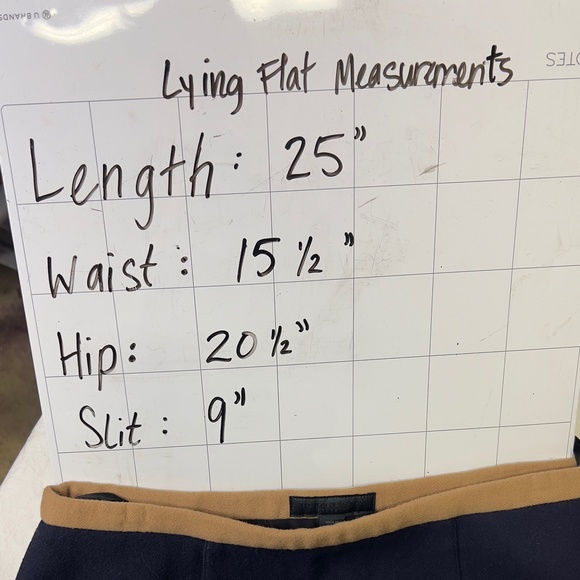 U BRANDS
Lying Flat Measurements
Length: 25"
Waist: 15 1/2"
Hip: 20 1/2"
Slit: 9"